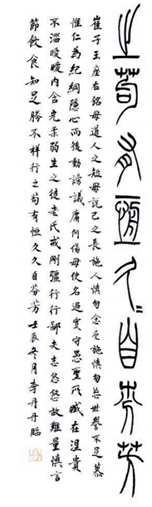 之苟有恆久〻自芬芳
崔子玉座右銘毋道人之短毋說己之長施人慎勿念受施慎勿忘世譽不足慕
惟仁為紀綱隱心而後動謗議庸何傷毋使名過實守愚聖所臧在涅貴
不淄曖曖內含光柔弱生之徒老氏戒剛彊行行鄙夫志悠悠故難量慎言
節飲食知足勝不祥行之苟有恆久久自芬芳壬辰冬月李丹丹臨